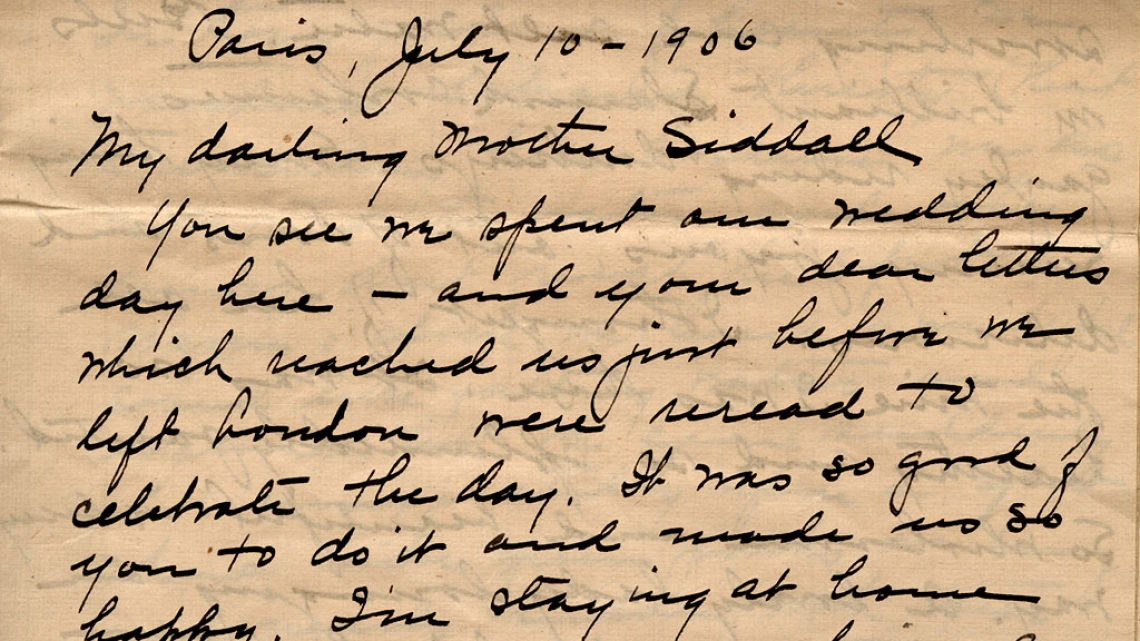 Paris, July 10 - 1906
My darling Mother Siddall
You see we spent our wedding
day here - and your dear letters
which reached us just before we
left London were reread to
celebrate the day. It was so good of
you to do it and made us so
happy. I'm staying at home